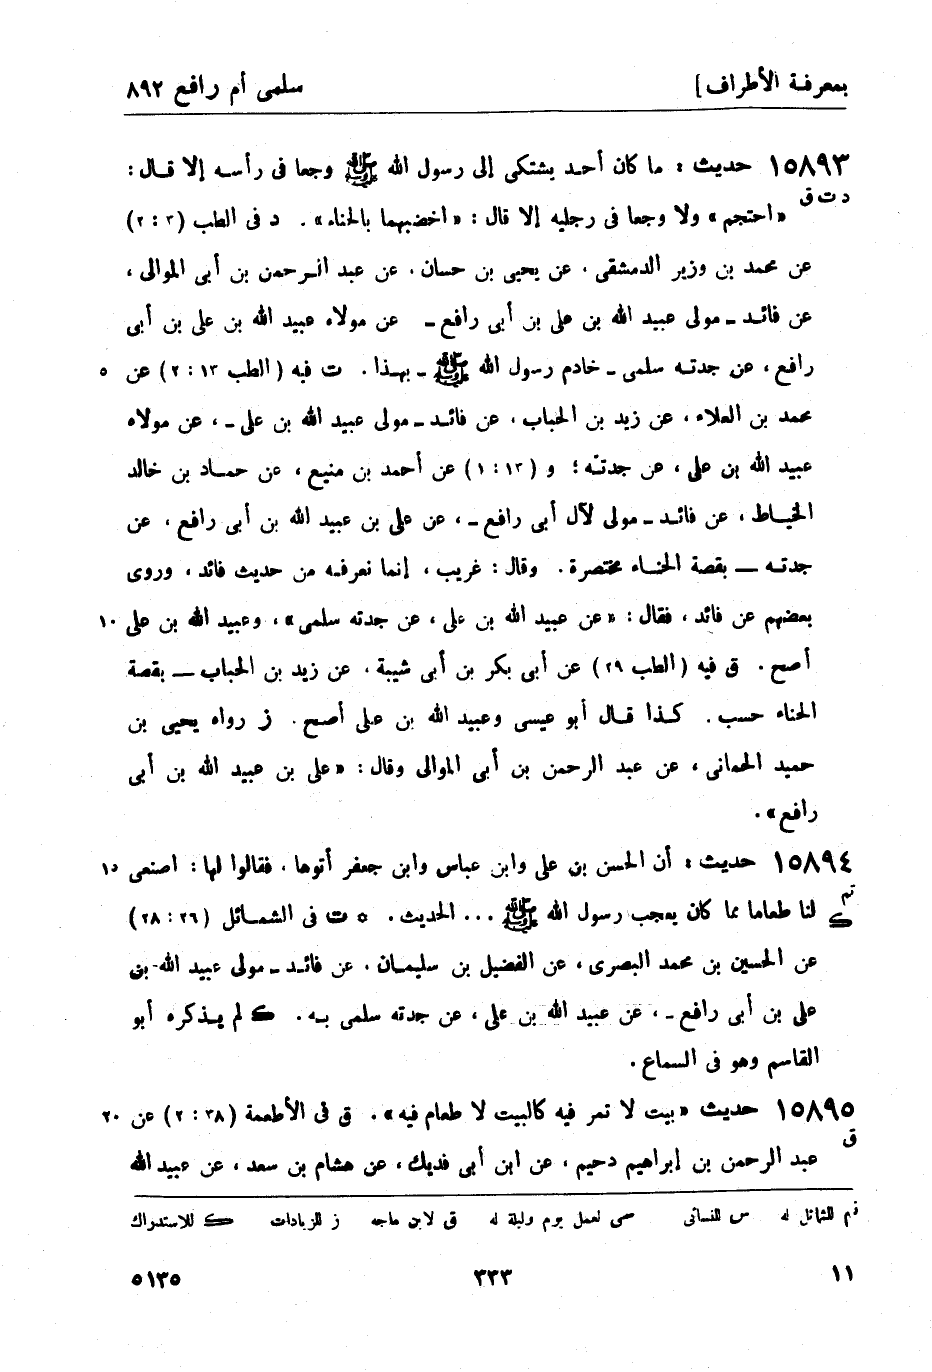 بمعرفة الأطراف] سلمى أم رافع ٨٩٢
١٥٨٩٣ حديث : ما كان أحد يشتكى إلى رسول الله ﷺ وجعا فى رأسه إلا قال :
د ت ق «احتجم» ولا وجعا فى رجليه إلا قال : «اخضبهما بالحناء» . د فى الطب (٣ : ٢)
عن محمد بن وزير الدمشقى ، عن يحيى بن حسان ، عن عبد الرحمن بن أبى الموالى ،
عن فائد ـ مولى عبيد الله بن على بن أبى رافع ـ عن مولاه عبيد الله بن على بن أبى
رافع ، عن جدته سلمى ـ خادم رسول الله ﷺ ـ بهذا . ت فيه (الطب ١٣ : ٢) عن ٥
محمد بن العلاء ، عن زيد بن الحباب ، عن فائد ـ مولى عبيد الله بن على ـ ، عن مولاه
عبيد الله بن على ، عن جدته ؛ و (١٣ : ١) عن أحمد بن منيع ، عن حماد بن خالد
الخياط ، عن فائد ـ مولى لآل أبى رافع ـ ، عن على بن عبيد الله بن أبى رافع ، عن
جدته ــ بقصة الحناء مختصرة . وقال : غريب ، إنما نعرفه من حديث فائد ، وروى
بعضهم عن فائد ، فقال : «عن عبيد الله بن على ، عن جدته سلمى» ، وعبيد الله بن على ١٠
أصح . ق فيه (الطب ٢٩) عن أبى بكر بن أبى شيبة ، عن زيد بن الحباب ــ بقصة
الحناء حسب . كذا قال أبو عيسى وعبيد الله بن على أصح . ز رواه يحيى بن
حميد الحمانى ، عن عبد الرحمن بن أبى الموالى وقال : «على بن عبيد الله بن أبى
رافع» .
١٥٨٩٤ حديث : أن الحسن بن على وابن عباس وابن جعفر أتوها ، فقالوا لها : اصنعى ١٥
تم ك لنا طعاما مما كان يعجب رسول الله ﷺ ... الحديث . ٥ ت فى الشمائل (٢٦ : ٢٨)
عن الحسين بن محمد البصرى ، عن الفضيل بن سليمان ، عن فائد ـ مولى عبيد الله بن
على بن أبى رافع ـ ، عن عبيد الله بن على ، عن جدته سلمى به . ك لم يذكره أبو
القاسم وهو فى السماع .
١٥٨٩٥ حديث «بيت لا تمر فيه كالبيت لا طعام فيه» . ق فى الأطعمة (٣٨ : ٢) عن ٢٠
ق عبد الرحمن بن إبراهيم دحيم ، عن ابن أبى فديك ، عن هشام بن سعد ، عن عبيد الله
تم للشمائل له س للنسائى سى لعمل يوم وليلة له ق لابن ماجه ز للزيادات ك للاستدراك
١١ ٣٣٣ ٥١٣٥